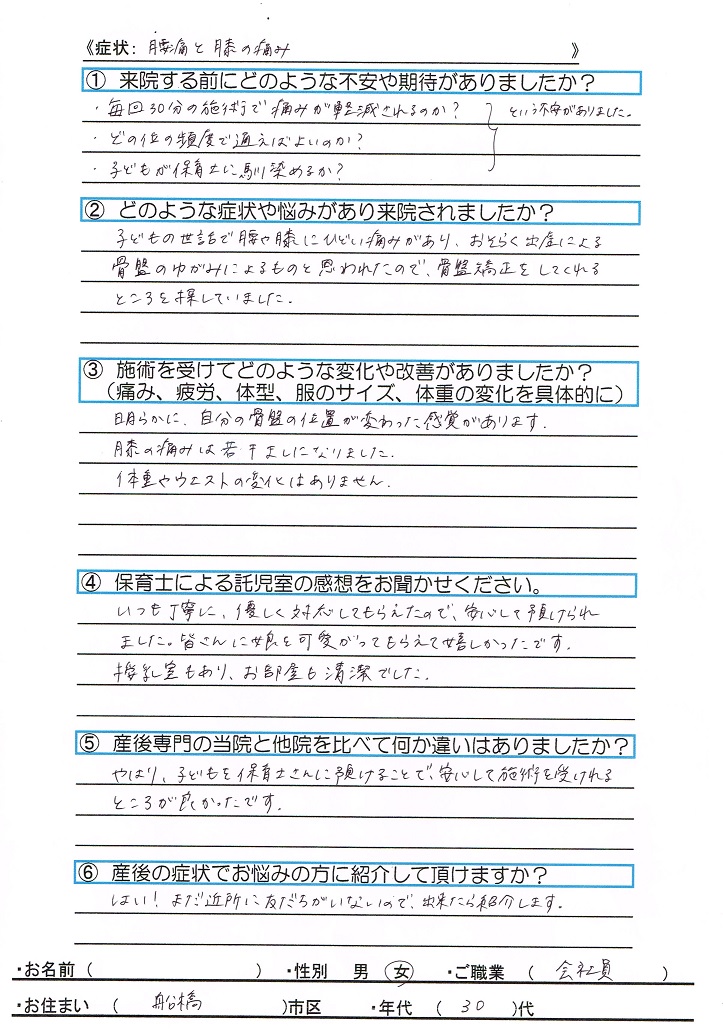 《症状: 腰痛と膝の痛み 》
① 来院する前にどのような不安や期待がありましたか？
・毎回30分の施術で痛みが軽減されるのか? という不安がありました。
・どの位の頻度で通えばよいのか?
・子どもが保育士に馴染めるか?
② どのような症状や悩みがあり来院されましたか？
子どもの世話で腰や膝にひどい痛みがあり、おそらく出産による
骨盤のゆがみによるものと思われたので、骨盤矯正をしてくれる
ところを探していました.
③ 施術を受けてどのような変化や改善がありましたか？
（痛み、疲労、体型、服のサイズ、体重の変化を具体的に）
明らかに、自分の骨盤の位置が変わった感覚があります.
膝の痛みは若干ましになりました.
体重やウエストの変化はありません.
④ 保育士による託児室の感想をお聞かせください。
いつも丁寧に、優しく対応してもらえたので、安心して預けられ
ました。皆さんに娘を可愛がってもらえて嬉しかったです.
授乳室もあり、お部屋も清潔でした.
⑤ 産後専門の当院と他院を比べて何か違いはありましたか？
やはり、子どもを保育士さんに預けることで、安心して施術を受けれる
ところが良かったです.
⑥ 産後の症状でお悩みの方に紹介して頂けますか？
はい! まだ近所に友だちがいないので、出来たら紹介します.
・お名前 ( ) ・性別 男 女 ・ご職業 ( 会社員 )
・お住まい ( 船橋 )市区 ・年代 ( 30 )代